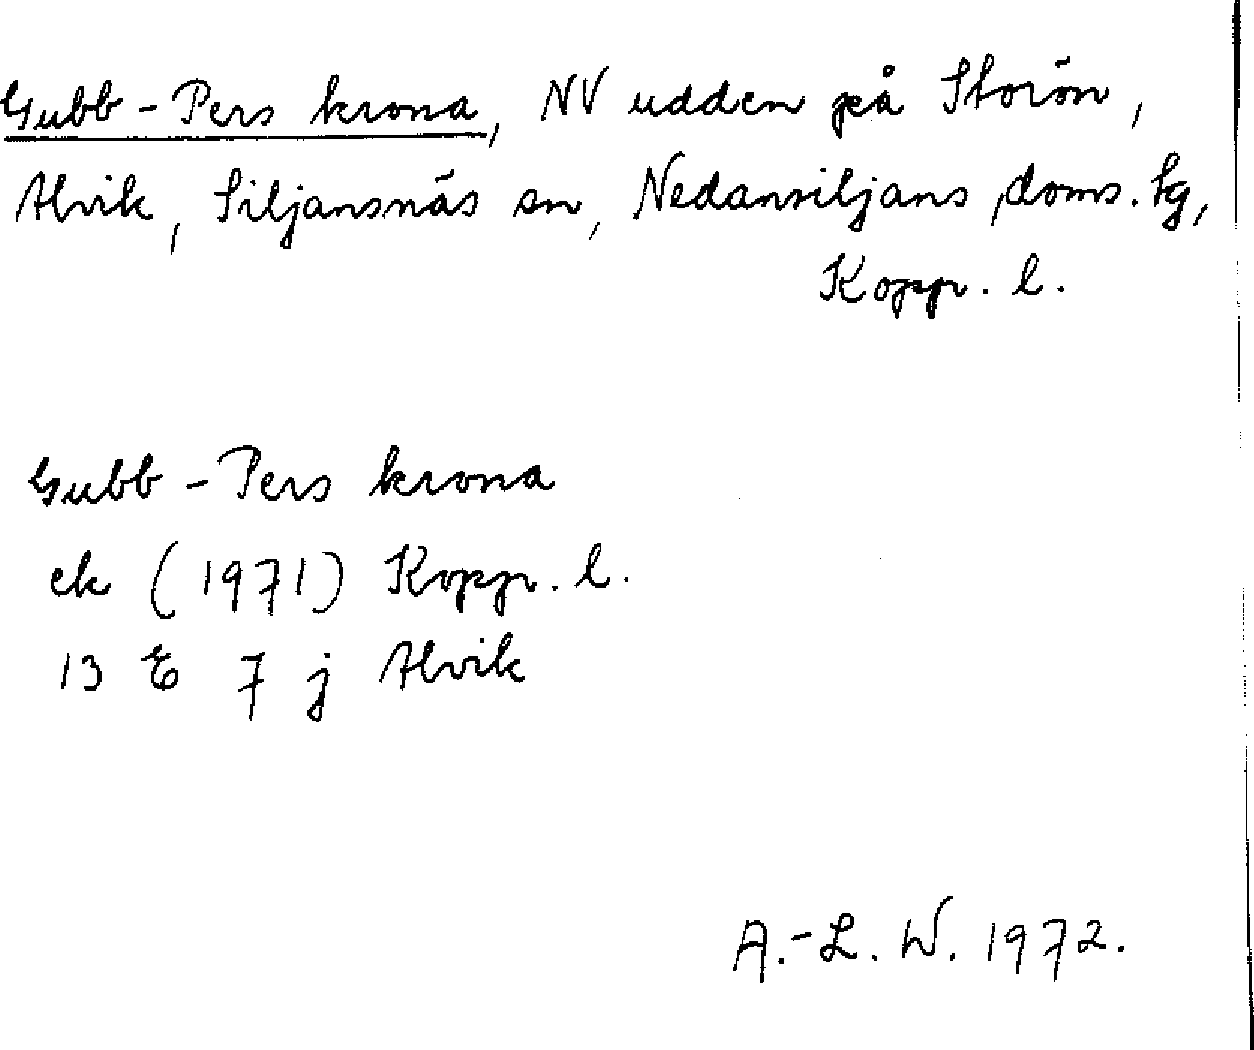 Gubb-Pers krona, NV udden på Storön,
Alvik, Siljansnäs sn, Nedansiljans doms. tg,
Kopp. l.
Gubb-Pers krona
ek (1971) Kopp. l.
13 E 7 j Alvik
A.-L. W. 1972.